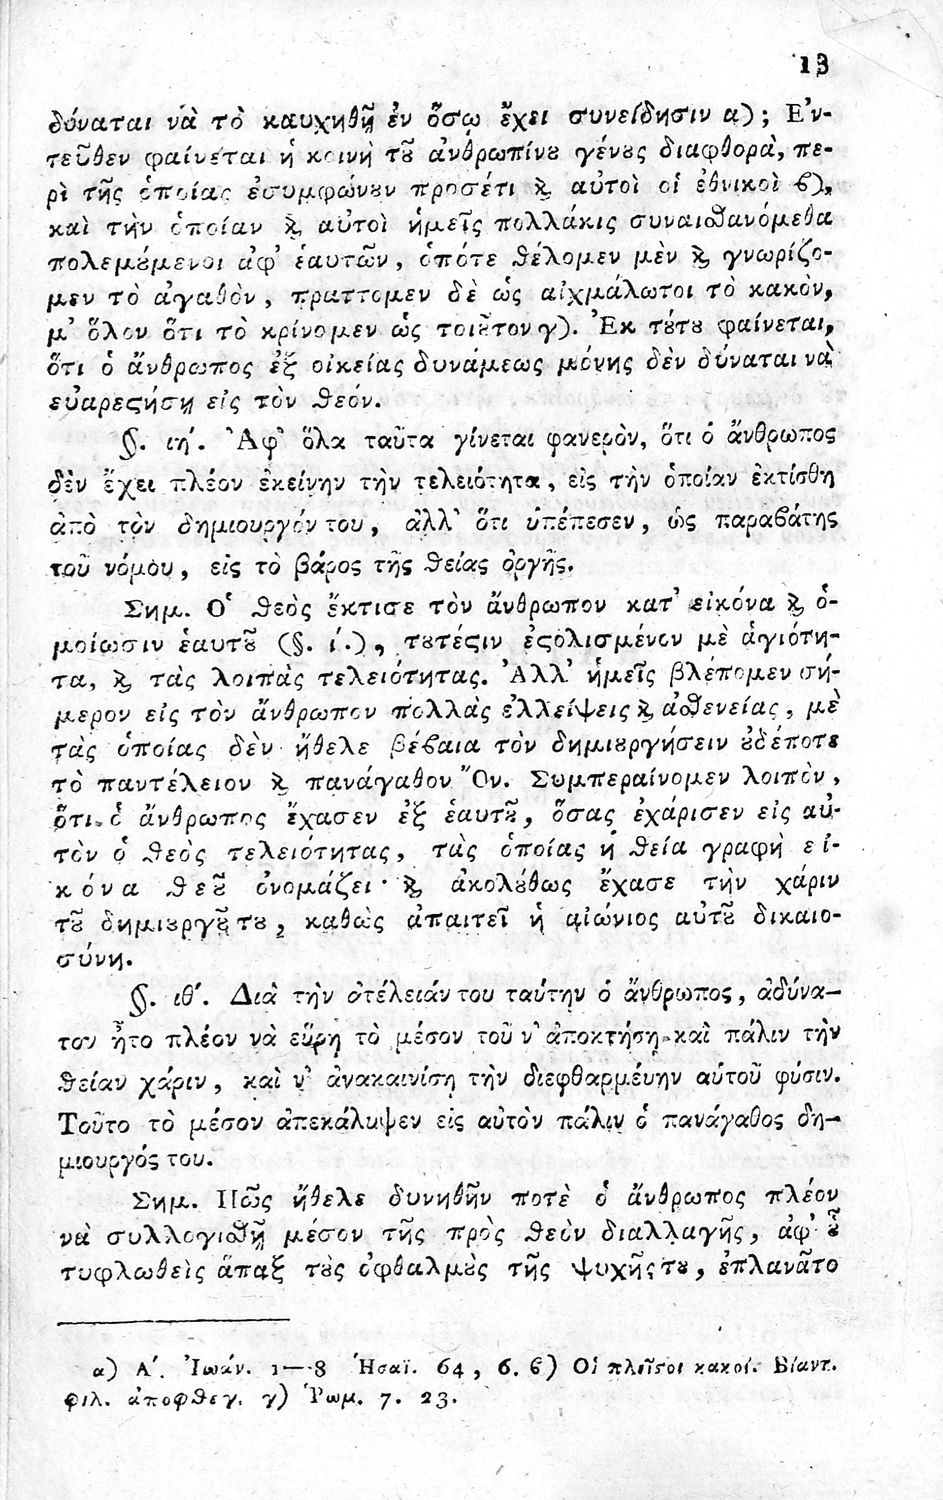 13
δύναται νὰ τὸ καυχηθῇ ἐν ὅσῳ ἔχει συνείδησιν α); Ἐν-
τεῦθεν φαίνεται ἡ κοινὴ τȣ͂ ἀνθρωπίνȣ γένȣς διαφθορὰ, πε-
ρὶ τῆς ὁποίας ἐσυμφώνȣν προσέτι ϗ αὐτοὶ οἱ ἐθνικοὶ ϐ),
καὶ τὴν ὁποίαν ϗ αὐτοὶ ἡμεῖς πολλάκις συναισθανόμεθα
πολεμȣ́μενοι ἀφ' ἑαυτῶν, ὁπότε θέλομεν μὲν ϗ γνωρίζο-
μεν τὸ ἀγαθὸν, πράττομεν δὲ ὡς αἰχμάλωτοι τὸ κακὸν,
μ' ὅλον ὅτι τὸ κρίνομεν ὡς τοιȣ͂τον γ). Ἐκ τȣ́τȣ φαίνεται,
ὅτι ὁ ἄνθρωπος ἐξ οἰκείας δυνάμεως μόνης δὲν δύναται νὰ
εὐαρεϛήσῃ εἰς τὸν Θεόν.
§. ιη'. Ἀφ' ὅλα ταῦτα γίνεται φανερὸν, ὅτι ὁ ἄνθρωπος
δὲν ἔχει πλέον ἐκείνην τὴν τελειότητα, εἰς τὴν ὁποίαν ἐκτίσθη
ἀπὸ τὸν δημιουργόν του, ἀλλ' ὅτι ὑπέπεσεν, ὡς παραϐάτης
τοῦ νόμου, εἰς τὸ βάρος τῆς θείας ὀργῆς.
Σημ. Ὁ Θεὸς ἔκτισε τὸν ἄνθρωπον κατ' εἰκόνα ϗ ὁ-
μοίωσιν ἑαυτȣ͂ (§. ί.), τȣτέϛιν ἐϛολισμένον μὲ ἁγιότη-
τα, ϗ τὰς λοιπὰς τελειότητας. Ἀλλ' ἡμεῖς βλέπομεν σή-
μερον εἰς τὸν ἄνθρωπον πολλὰς ἐλλείψεις ϗ ἀσθενείας, μὲ
τὰς ὁποίας δὲν ἤθελε βέϐαια τὸν δημιȣργήσειν ȣ̓δέποτε
τὸ παντέλειον ϗ πανάγαθον Ὄν. Συμπεραίνομεν λοιπὸν,
ὅτι ὁ ἄνθρωπος ἔχασεν ἐξ ἑαυτȣ͂, ὅσας ἐχάρισεν εἰς αὐ-
τὸν ὁ Θεὸς τελειότητας, τὰς ὁποίας ἡ θεία γραφὴ εἰ-
κόνα Θεȣ͂ ὀνομάζει· ϗ ἀκολȣ́θως ἔχασε τὴν χάριν
τȣ͂ δημιȣργȣ͂ τȣ, καθὼς ἀπαιτεῖ ἡ αἰώνιος αὐτȣ͂ δικαιο-
σύνη.
§. ιθ'. Διὰ τὴν ἀτέλειάν του ταύτην ὁ ἄνθρωπος, ἀδύνα-
τον ἦτο πλέον νὰ εὕρῃ τὸ μέσον τοῦ ν' ἀποκτήσῃ καὶ πάλιν τὴν
θείαν χάριν, καὶ ν' ἀνακαινίσῃ τὴν διεφθαρμένην αὐτοῦ φύσιν.
Τοῦτο τὸ μέσον ἀπεκάλυψεν εἰς αὐτὸν πάλιν ὁ πανάγαθος δη-
μιουργός του.
Σημ. Πῶς ἤθελε δυνηθῆν ποτὲ ὁ ἄνθρωπος πλέον
νὰ συλλογισθῇ μέσον τῆς πρὸς Θεὸν διαλλαγῆς, ἀφ' ȣ̔͂
τυφλωθεὶς ἅπαξ τȣ̀ς ὀφθαλμȣ̀ς τῆς ψυχῆς τȣ, ἐπλανᾶτο
α) Α'. Ἰωάν. 1—8 Ἡσαΐ. 64, 6. ϐ) Οἱ πλεῖϛοι κακοί. Βίαντ.
φιλ. ἀποφθεγ. γ) Ῥωμ. 7. 23.